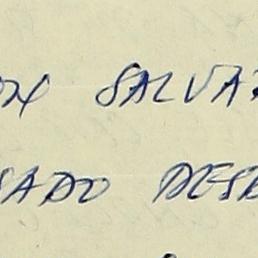 ON SALVA
SADO DESE